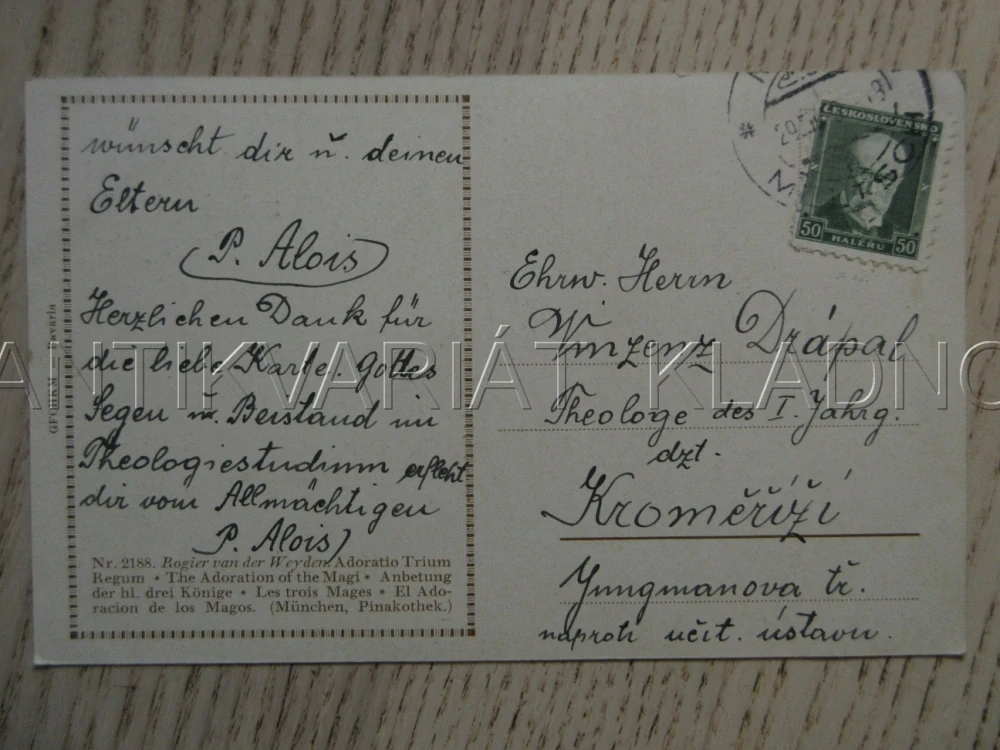 wünscht dir u. deinen
Eltern
P. Alois
Herzlichen Dank für
die liebe Karte. Gottes
Segen u. Beistand im
Theologiestudium erfleht
dir vom Allmächtigen
P. Alois
Nr. 2188. Rogier van der Weyden. Adoratio Trium
Regum • The Adoration of the Magi • Anbetung
der hl. drei Könige • Les trois Mages • El Ado-
racion de los Magos. (München, Pinakothek.)
Bavaria
ČESKOSLOVENSKO
50 HALÉŘŮ 50
Ehrw. Herrn
Vinzenz Drápal
Theologe des I. Jahrg.
dzt.
Kroměříži
Jungmanova tř.
naproti učit. ústavu.
ANTIKVARIÁT KLADNO